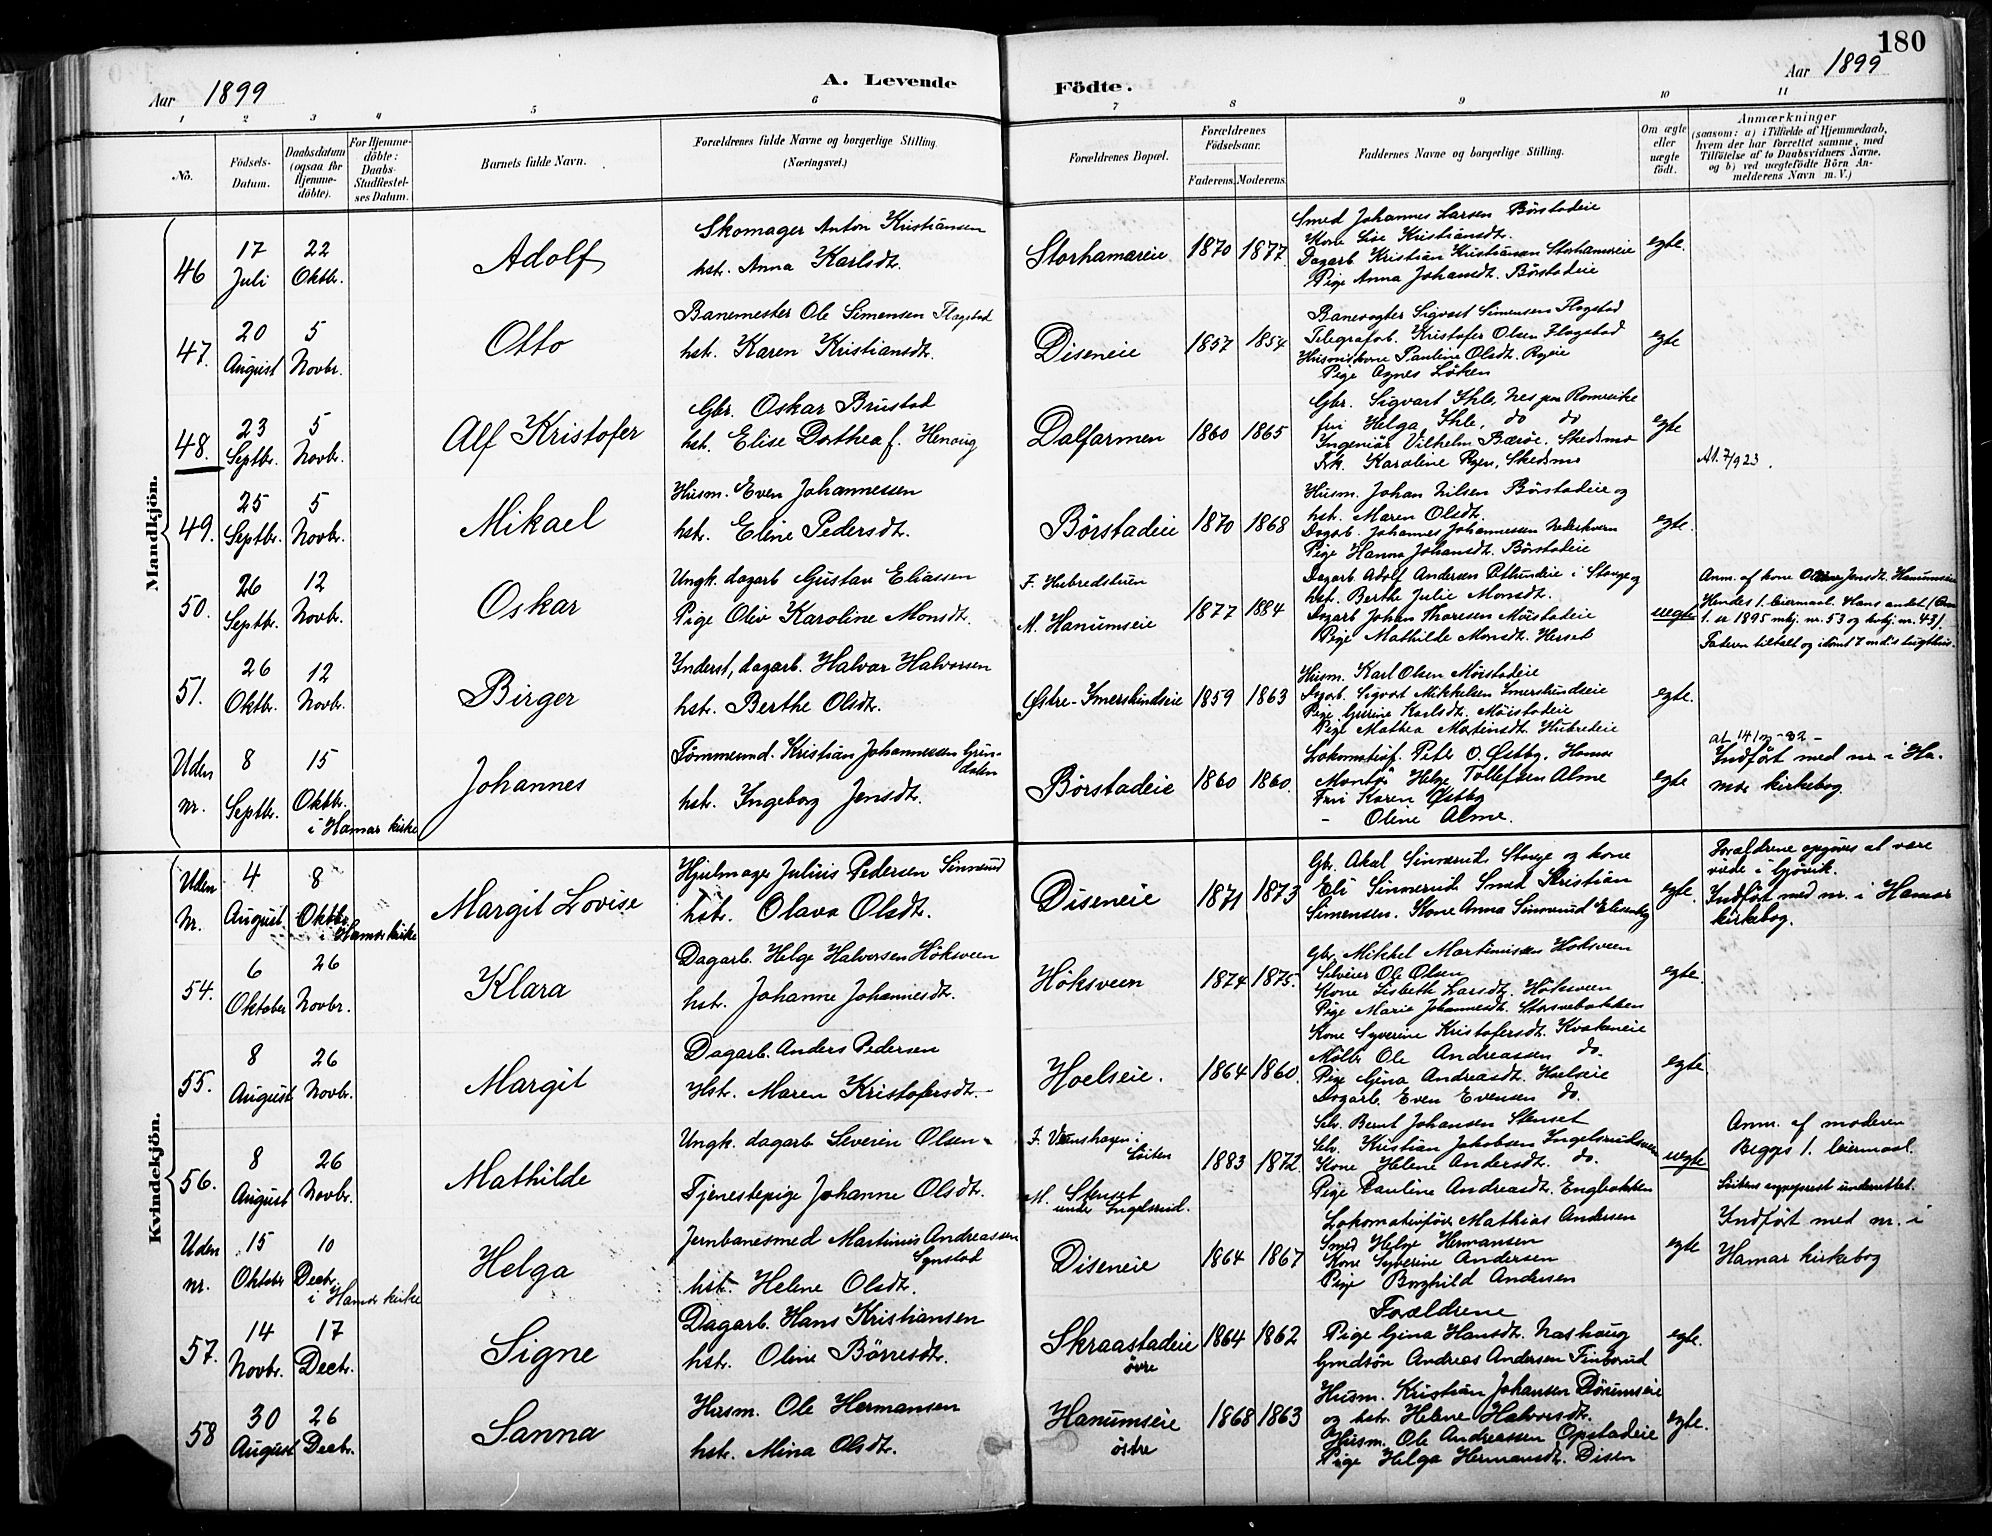 180
Aar 1899
A. Levende
Födte.
Aar 1899
1 2 3 4 5 6 7 8 9 10 11
No.
Födsels-Datum.
Daabsdatum (ogsaa for Hjemme-döbte).
For Hjemme-döbte: Daabs-Stadfæstel-ses Datum.
Barnets fulde Navn.
Forældrenes fulde Navne og borgerlige Stilling.
(Næringsvei.)
Forældrenes Bopæl.
Forældrenes Födselsaar.
Faderens. Moderens.
Faddernes Navne og borgerlige Stilling.
Om ægte eller uægte födt.
Anmærkninger
(saasom: a) i Tilfælde af Hjemmedaab,
hvem der har forrettet samme, med
Tilföielse af to Daabsvidners Navne,
og b) ved uægtefödte Börn An-
melderens Navn m. V.)
Mandkjön.
46
17 Juli
22 Oktbr.
Adolf
Skomager Anton Kristiansen
hstr. Anna Karlsdt.
Storhamareie
1870 1877
Smed Johannes Larsen Börstadeie
Kone Lise Kristiansdt.
Dagarb Kristian Kristiansen Storhamareie
Pige Anna Johansdt. Börstadeie
egte.
47.
20 August
5 Novbr.
Otto
Banemester Ole Simensen Flagstad
hst. Karen Kristiansdt.
Diseneie
1857 1854
Banevogter Sigvart Simensen Flagstad
Telegrafol. Kristofer Olsen Flagstad
Husmskone Pauline Olsdt.
Pige Agnes Löken
egte
48.
23 Septbr.
5 Novbr.
Alf Kristofer
Gbr. Oskar Brustad
hst. Elise Dorthea f. Henoug
Dalfarmen
1860 1865
Gbr. Sigvart Ihle, Nes paa Romerike
fru Helga Ihle, do do
Ingeniör Vilhelm Bæröe, Skedsmo
Frk. Karoline Ryen, Skedsmo
egte
At. 7/923.
49.
25 Septbr.
5 Novbr.
Mikael
Husm. Even Johannessen
hstr. Eline Pedersdt.
Börstadeie
1870 1868
Husm. Johan Nilsen Börstadeie og
hst. Maren Olsdt.
Dagarb. Johannes Johannessen Nederkvern
Pige Hanna Johansdt. Börstadeie
egte.
50.
26 Septbr.
12 Novbr.
Oskar
Ungk. dagarb Gustav Eliassen
Pige Oliv Karoline Monsdt.
F. Hubredstuen
M. Hanumseie
1877 1884
Dagarb Adolf Andersen i Stange og
hst. Berthe Julie Monsdt.
Dagarb Johan Thoresen Möistadeie
Pige Mathilde Monsdt. Herset
uegte
Anm. af kone Oline Jensdt. Hanumseie
Hendes 1. leiermaal. Hans andet
1. er 1895 mkj. nr. 53 og kvkj. nr. 45).
Faderen tiltalt og idömt 7 md.s tugthus.
51.
26 Oktbr.
12 Novbr.
Birger
Inderst, dagarb. Halvar Halvorsen
hst. Berthe Olsdt.
Östre-Imerslundseie
1859 1863
Husm. Karl Olsen Möistadeie
Dagarb. Sigvart Mikkelsen Imerslundseie
Pige Gurine Karlsdt. Möistadeie
Pige Mathea Martinsdt. Hubredeie
egte.
Uden nr.
8 Septbr.
15 Oktbr.
i Hamar kirke
Johannes
Tömmermd. Kristian Johannessen Grün-
dalen
hst. Ingeborg Jensdt.
Börstadeie
1860 1860.
Lokomotivf. Peter O. Östby, Hamar
Montör Helge Tollefsen Alme
Fru Karen Östby
- Oline Alme.
egte
Indfört med nr. i Ha-
mar kirkebog.
Kvindekjön.
Uden Nr.
4 August
8 Oktbr.
i Hamar kirke
Margit Lovise
Hjulmager Julius Pedersen Sinnerud
hst. Olava Olsdt.
Diseneie
1871 1873
Gbr. Aksel Sinnerud Stange og kone
Eli Sinnerud Smed Kristian
Simensen. Kone Anna Sinnerud Elisenberg
egte.
Forældrene opgives at være
viede i Gjövik.
Indfört med nr. i Hamar
kirkebog.
54.
6 Oktober
26 Novbr.
Klara
Dagarb. Helge Halvorsen Höksveen
hst. Johanne Johannesdt.
Höksveen
1874 1875.
Gbr. Mikkel Martinussen Höksveen
Selveier Ole Olsen
Kone Lisbeth Larsdt. Höksveen
Pige Marie Johannesdt. Storsvebakken
egte.
55.
8 August
26 Novbr.
Margit
Dagarb. Anders Pedersen
Hst. Maren Kristofersdt.
Hoelseie.
1864 1860.
Kone Syverine Kristofersdt. Kvakeneie
Möller Ole Andreassen do.
Pige Gina Andreasdt. Hoelseie
Dagarb. Even Evensen do.
egte
56.
8 August
26 Novbr.
Mathilde
Ungk. dagarb Severin Olsen
Tjenestepige Johanne Olsdt.
F. i Löiten
M. Stenset
under Ingelsrud.
1883 1872.
Selv. Bernt Johansen Stenset
Selv. Kristian Jakobsen Ingelsrudsveen
Kone Helene Andersdt. do.
Pige Pauline Andreasdt. Engbakken
uegte
Anm. af moderen
Begges 1. leiermaal.
Löitens sogneprest underrettet.
Uden nr.
15 Oktober
10 Decbr.
i Hamar kirke
Helga
Jernbanesmed Martinus Andreassen
Synstad
hst. Helene Olsdt.
Diseneie
1864 1867
Lokomotivförer Mathias Andersen
Smed Helge Hermansen
Kone Syverine Andersen
Pige Borghild Andersen
egte
Indfört med nr. i
Hamar kirkebog
57.
14 Novbr.
17 Decbr.
Signe
Dagarb. Hans Kristiansen
hst. Oline Börresdt.
Skraastadeie
övre
1864 1862
Forældrene
Pige Gina Hansdt. Nashoug
Gmdsön Andreas Andersen Finborud
egte.
58
30 August
26 Decbr.
Sanna
Husm. Ole Hermansen
hst. Mina Olsdt.
Hanumseie
östre
1868 1863
Husm. Kristian Johansen Dörumseie
og hst. Helene Halvorsdt.
Husm. Ole Andreassen Opstadeie
Pige Helga Hermansdt. Disen
egte.